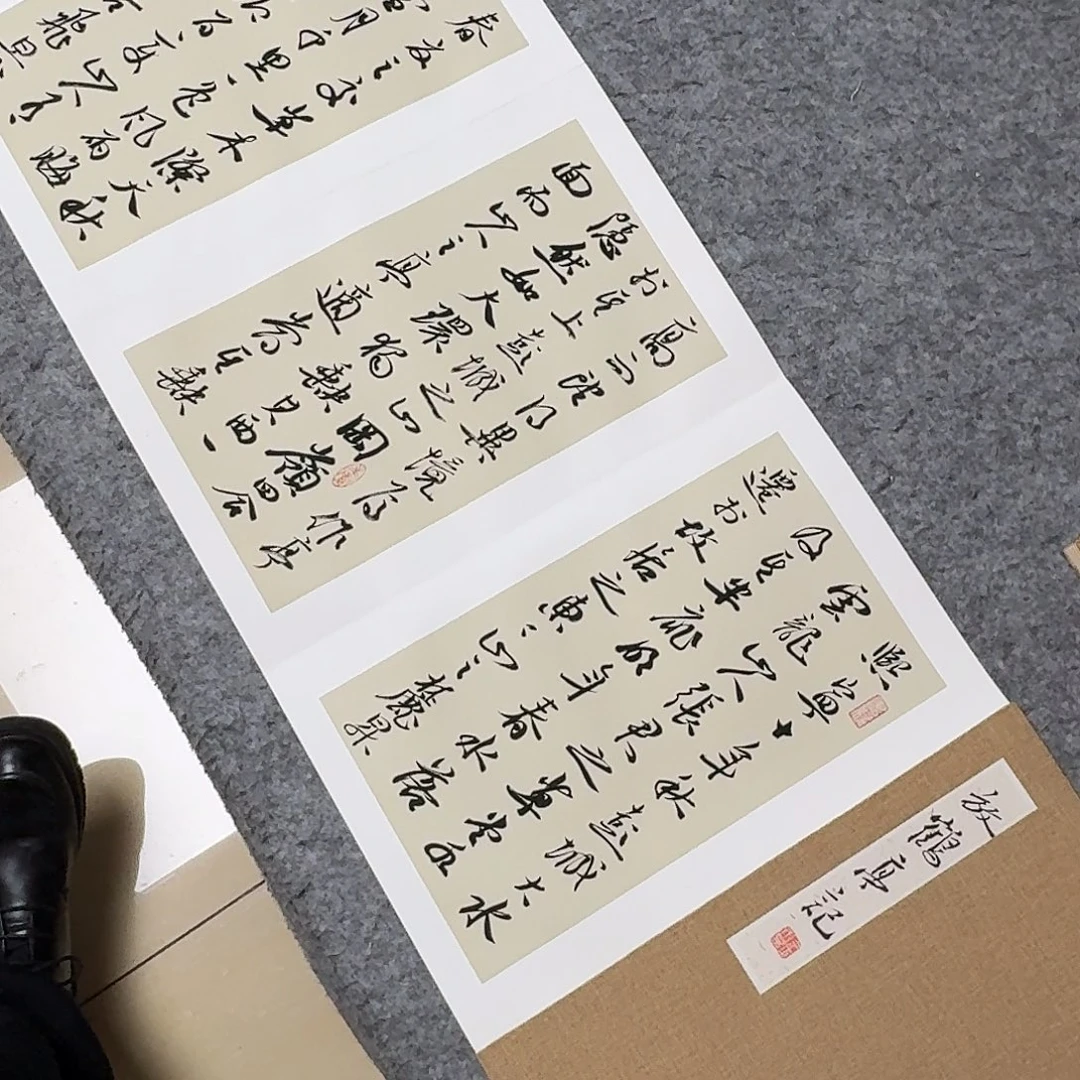 放鶴亭記
熙寧十年秋彭城大水
雲龍山人張君之草堂水
及其半扉明年春水落
遷於故居之東々山之麓昇
高而望得異境焉作亭
於其上彭城之山岡嶺四合
隱然如大環獨缺其西一
面而山人之亭適當其缺
春夏之交草木際天秋
雪月千里一色風雨晦
百變山人有
飛旦